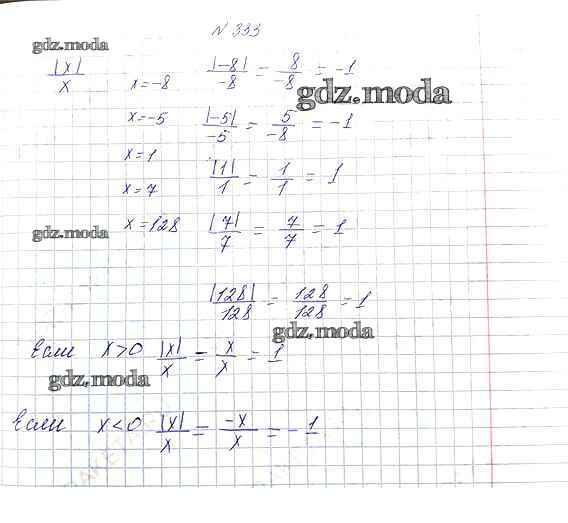 N 333
gdz.moda
|x|/x x = -8 |-8|/-8 = 8/-8 = -1
gdz.moda
x = -5 |-5|/-5 = 5/-8 = -1
x = 1 |1|/1 = 1/1 = 1
x = 7
gdz.moda x = 128 |7|/7 = 7/7 = 1
|128|/128 = 128/128 = 1
gdz.moda
Если x > 0 |x|/x = x/x = 1
gdz.moda
Если x < 0 |x|/x = -x/x = -1